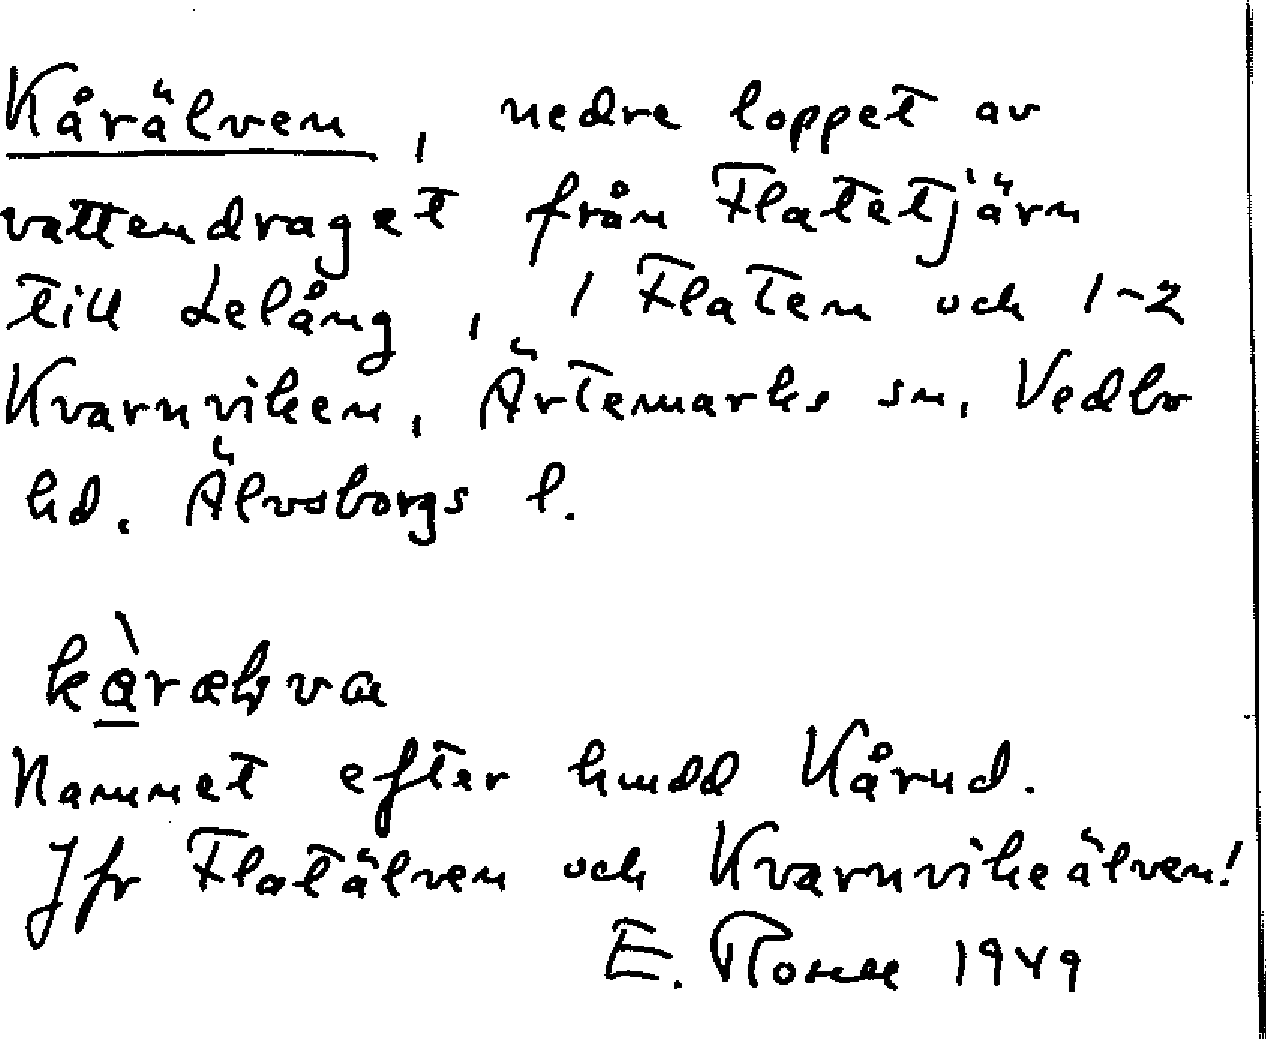 Kårälven, nedre loppet av
vattendraget från Flatetjärn
till Lelång, 1 Flaten och 1-2
Kvarnviken, Ärtemarks sn, Vedbo
hd. Älvsborgs l.
Namnet efter hmdd Kårud.
Jfr Flatälven och Kvarnvikeälven!
E. 1949